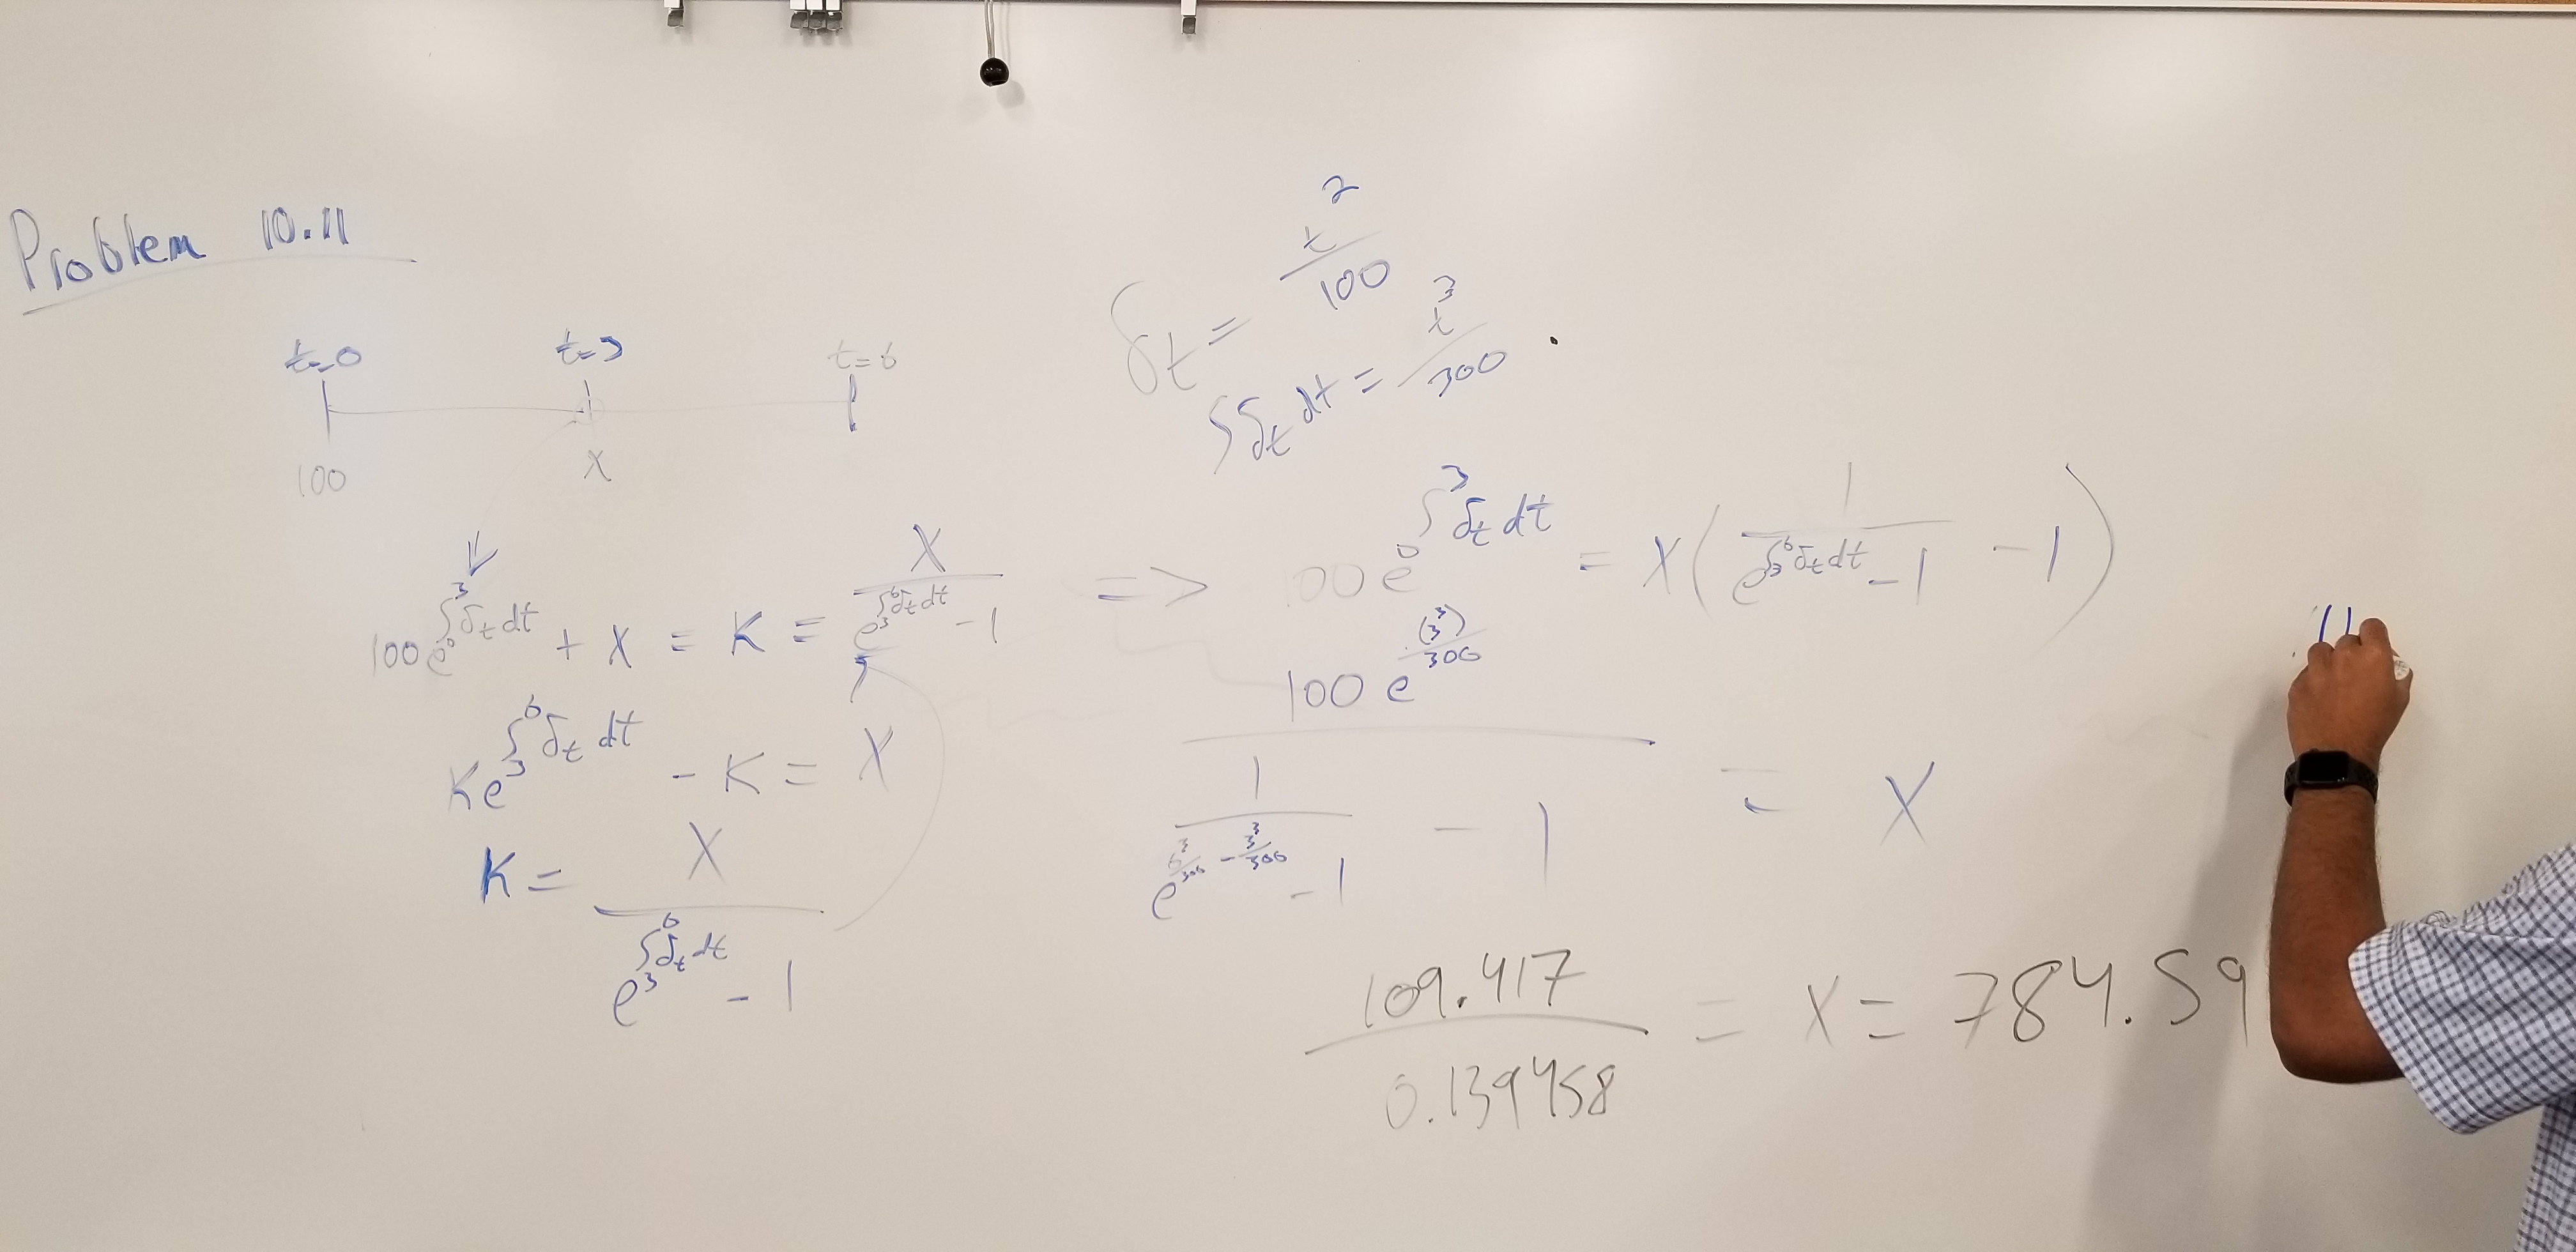 Problem 10.11
t=0 t=3 t=6
100 X
100 e^{∫_0^3 δ_t dt} + X = K = X / (e^{∫_3^6 δ_t dt} - 1)
K e^{∫_3^6 δ_t dt} - K = X
K = X / (e^{∫_3^6 δ_t dt} - 1)
δ_t = t^2 / 100
∫ δ_t dt = t^3 / 300 .
=> 100 e^{∫_0^3 δ_t dt} = X ( 1 / (e^{∫_3^6 δ_t dt} - 1) - 1 )
100 e^{(3^3)/300} / ( 1 / (e^{6^3/300 - 3^3/300} - 1) - 1 ) = X
109.417 / 0.139458 = X = 784.59